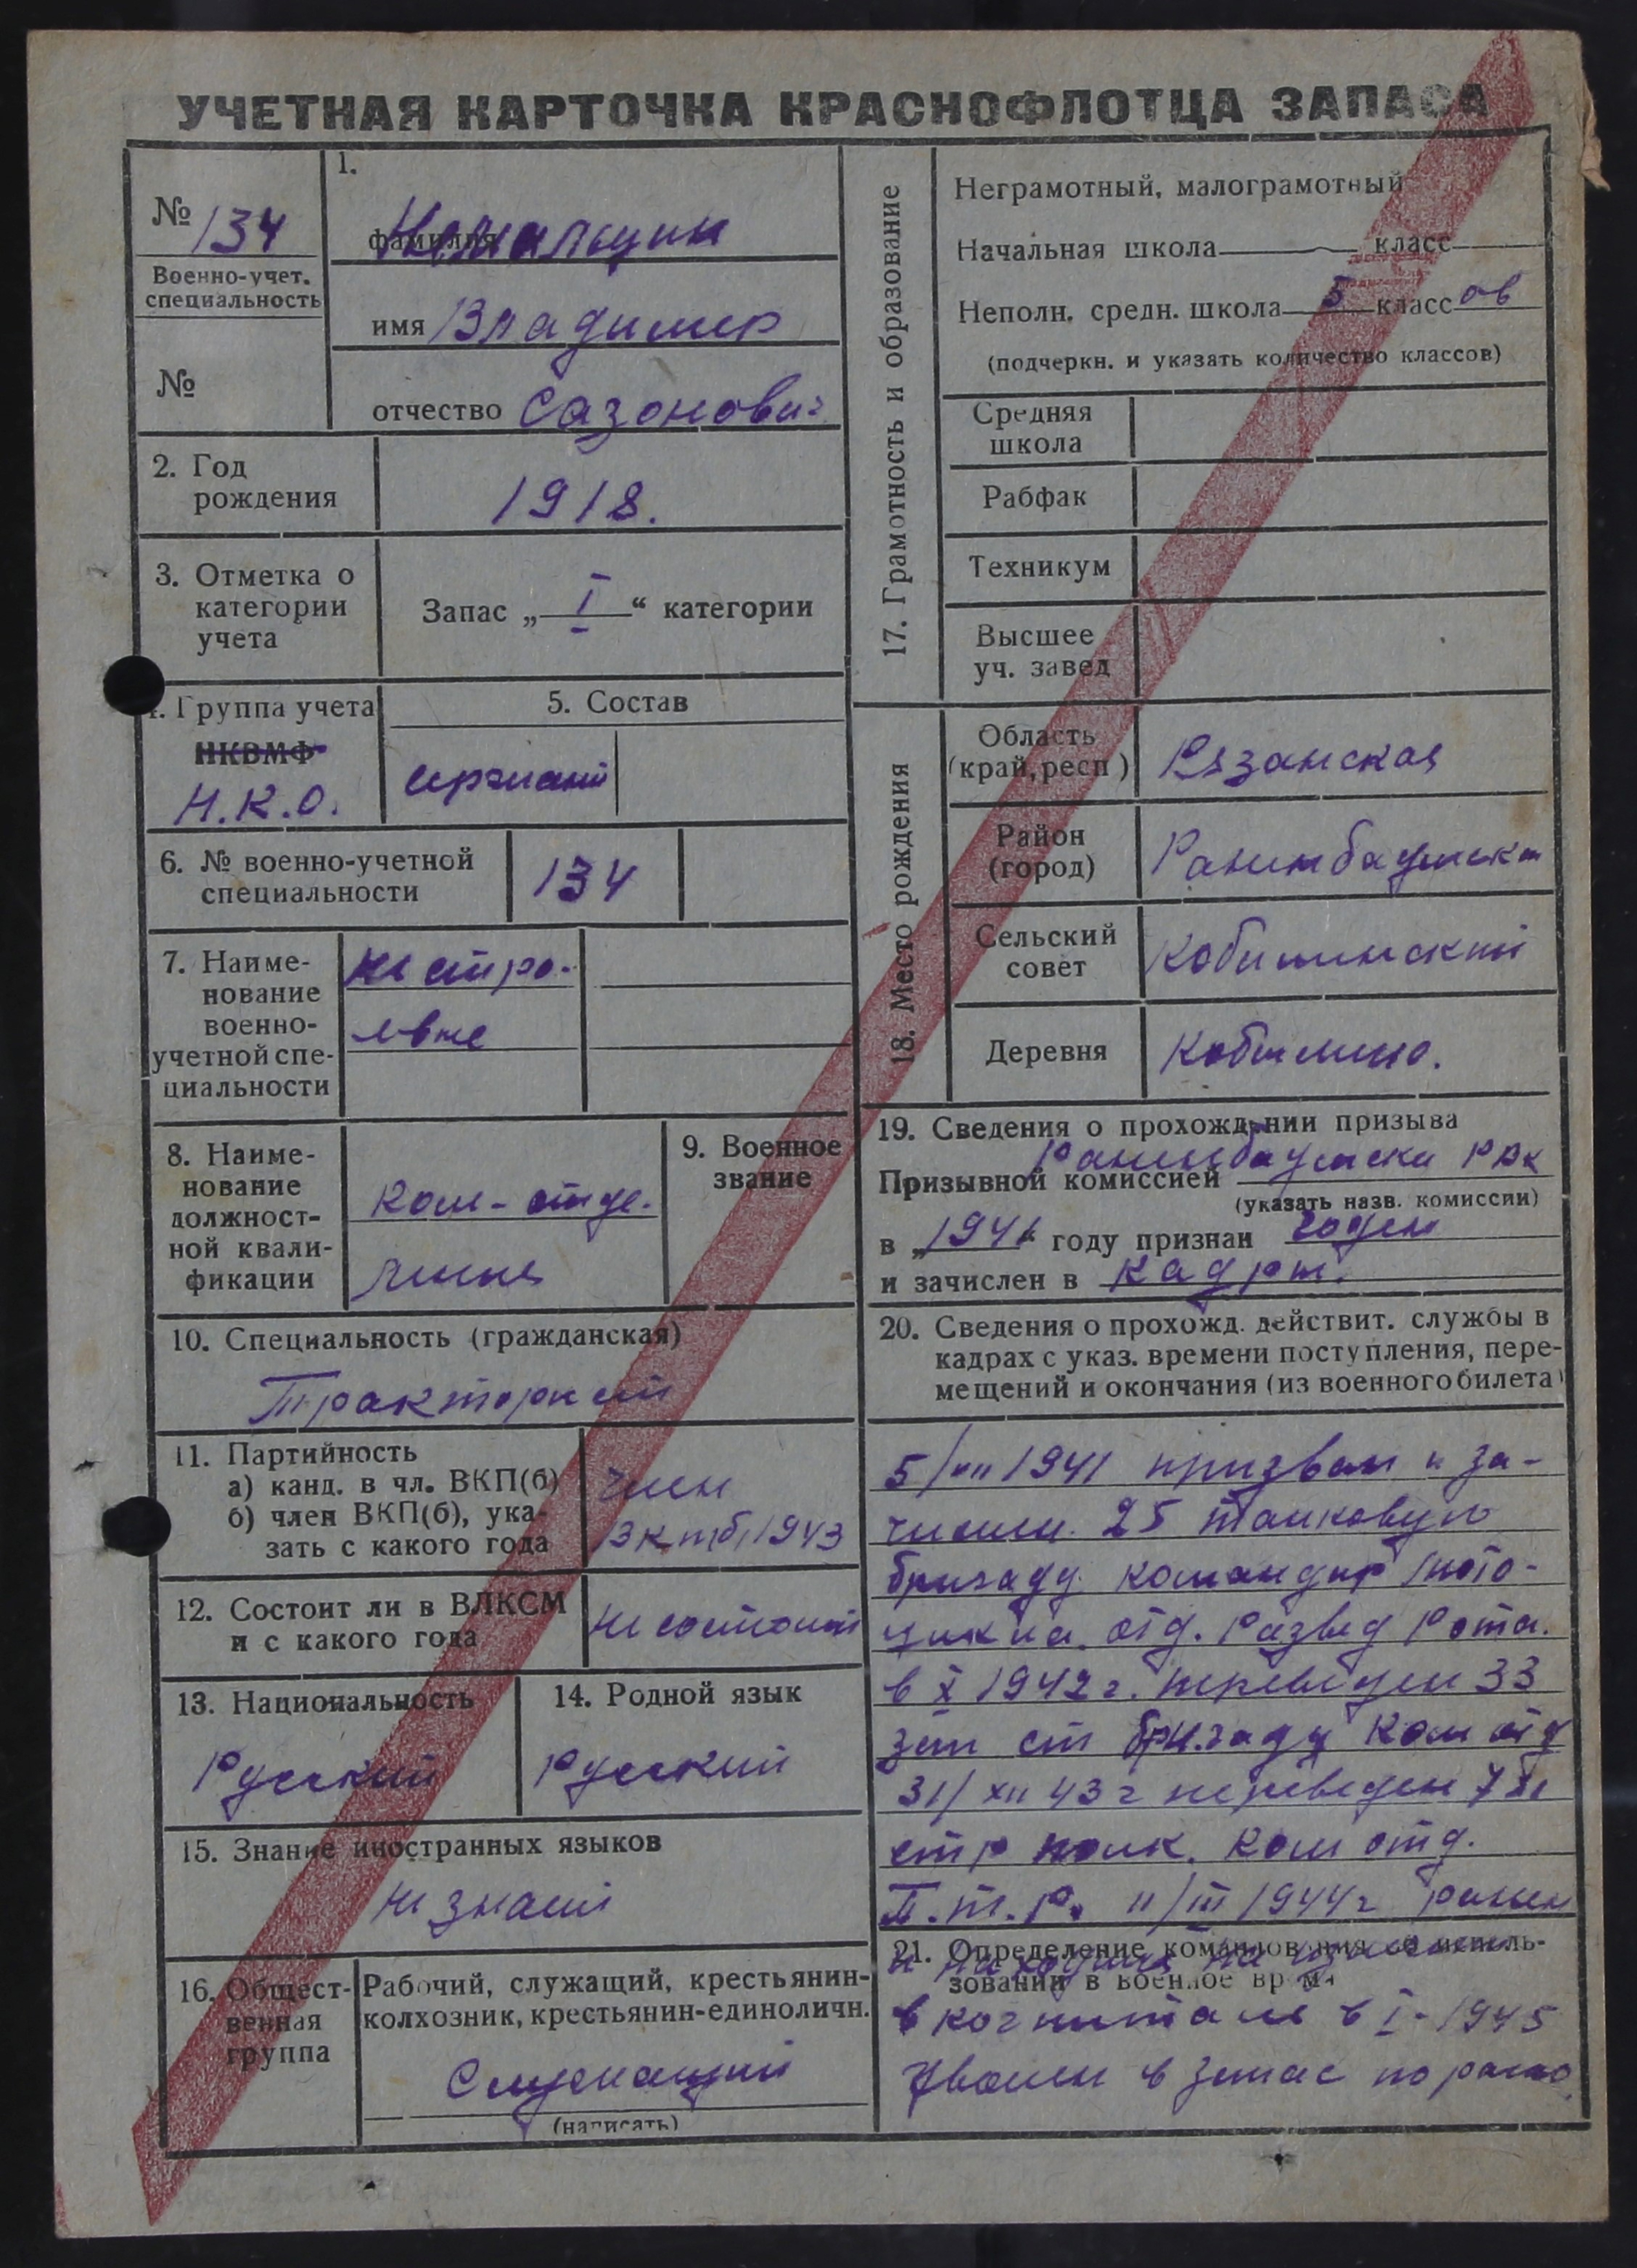 УЧЕТНАЯ КАРТОЧКА КРАСНОФЛОТЦА ЗАПАСА
№ 134
Военно-учет.
специальность
№
1.
фамилия
имя Владимир
отчество Сазонович
2. Год
рождения
1918.
3. Отметка о
категории
учета
Запас „ I “ категории
4. Группа учета
НКВМФ
Н.К.О.
5. Состав
сержант
6. № военно-учетной
специальности
134
7. Наиме-
нование
военно-
учетной спе-
циальности
8. Наиме-
нование
должност-
ной квали-
фикации
Ком-отде-
ления
9. Военное
звание
10. Специальность (гражданская)
Тракторист
11. Партийность
а) канд. в чл. ВКП(б)
б) член ВКП(б), ука-
зать с какого года
член
ВКПб 1943
12. Состоит ли в ВЛКСМ
и с какого года
Не состоит
13. Национальность
Русский
14. Родной язык
Русский
15. Знание иностранных языков
Не знает
16. Общест-
венная
группа
Рабочий, служащий, крестьянин-
колхозник, крестьянин-единоличн.
Служащий
(написать)
17. Грамотность и образование
Неграмотный, малограмотный
Начальная школа класс
Неполн. средн. школа 5 класс ов
(подчеркн. и указать количество классов)
Средняя
школа
Рабфак
Техникум
Высшее
уч. завед
18. Место рождения
Область
(край, респ)
Рязанская
Район
(город)
Сельский
совет
Деревня
19. Сведения о прохождении призыва
Призывной комиссией РВК
(указать назв. комиссии)
в „1941“ году признан годен
и зачислен в кадры.
20. Сведения о прохожд. действит. службы в
кадрах с указ. времени поступления, пере-
мещений и окончания (из военного билета)
5/VII 1941 призван и за-
числен. 25 танковую
бригаду. командир мото-
цикла. отд. Развед Рота.
в X 1942 г. переведен 33
зап ст бригаду Ком отд
31/XII 43 г переведен 7
стр полк. Ком отд.
П.т.Р. 11/III 1944 г ранен
21. Определение командования об исполь-
зовании в военное время
и находился на излечении
в госпитале в I-1945
Уволен в запас по раню